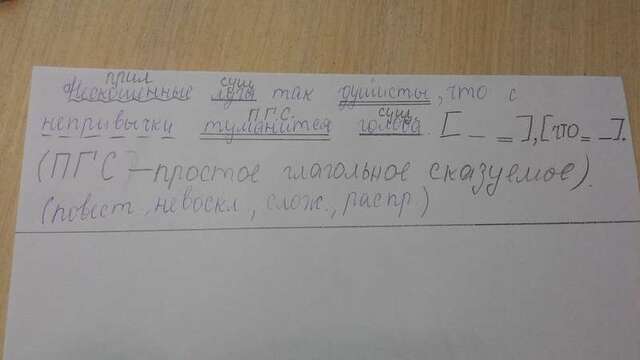 прил сущ
Нескошенные луга так душисты, что с
П.Г.С. сущ
непривычки туманится голова. [_ =], [что = _].
(ПГС – простое глагольное сказуемое).
(повест., невоскл., слож., распр.)